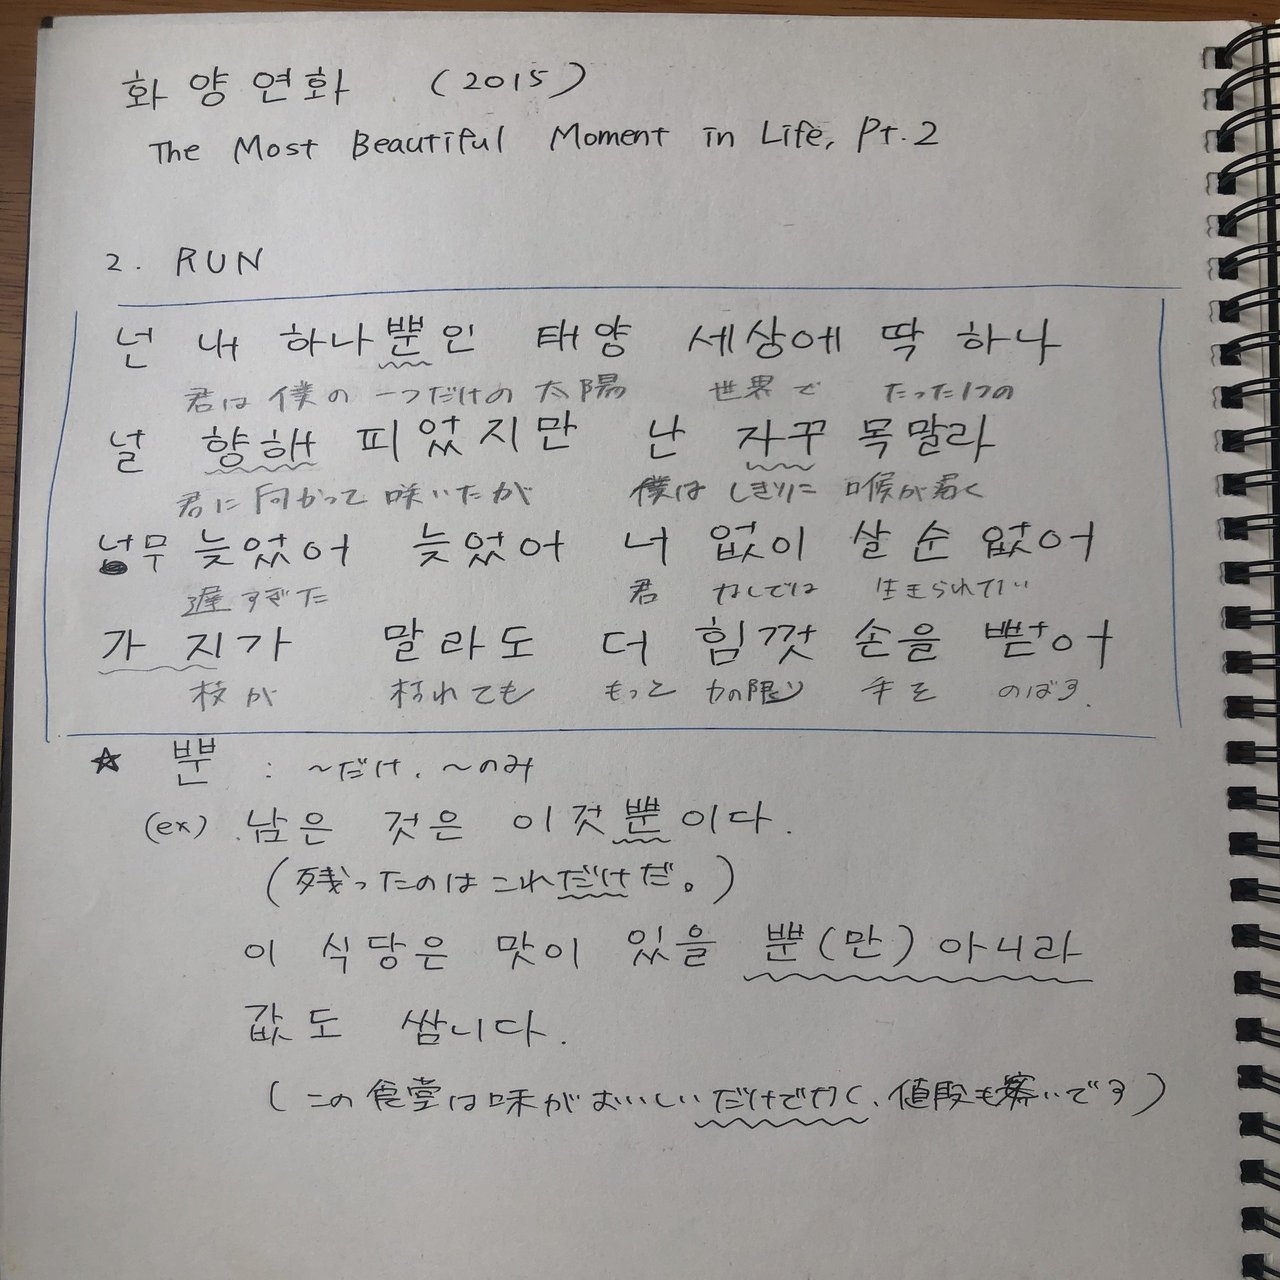 화양연화 (2015)
The Most Beautiful Moment in Life, Pt.2
2. RUN
넌 내 하나뿐인 태양 세상에 딱 하나
君は 僕の 一つだけの 太陽 世界で たった1つの
널 향해 피었지만 난 자꾸 목말라
君に 向かって 咲いたが 僕は しきりに 喉が渇く
넘무 늦었어 늦었어 너 없이 살 순 없어
遅すぎた 君 なしでは 生きられない
가지가 말라도 더 힘껏 손을 뻗어
枝が 枯れても もっと 力の限り 手を のばす.
☆ 뿐 : ~だけ、~のみ
(ex) 남은 것은 이것뿐이다.
(残ったのはこれだけだ。)
이 식당은 맛이 있을 뿐(만) 아니라
값도 쌉니다.
(この食堂は味がおいしいだけでなく、値段も安いです)